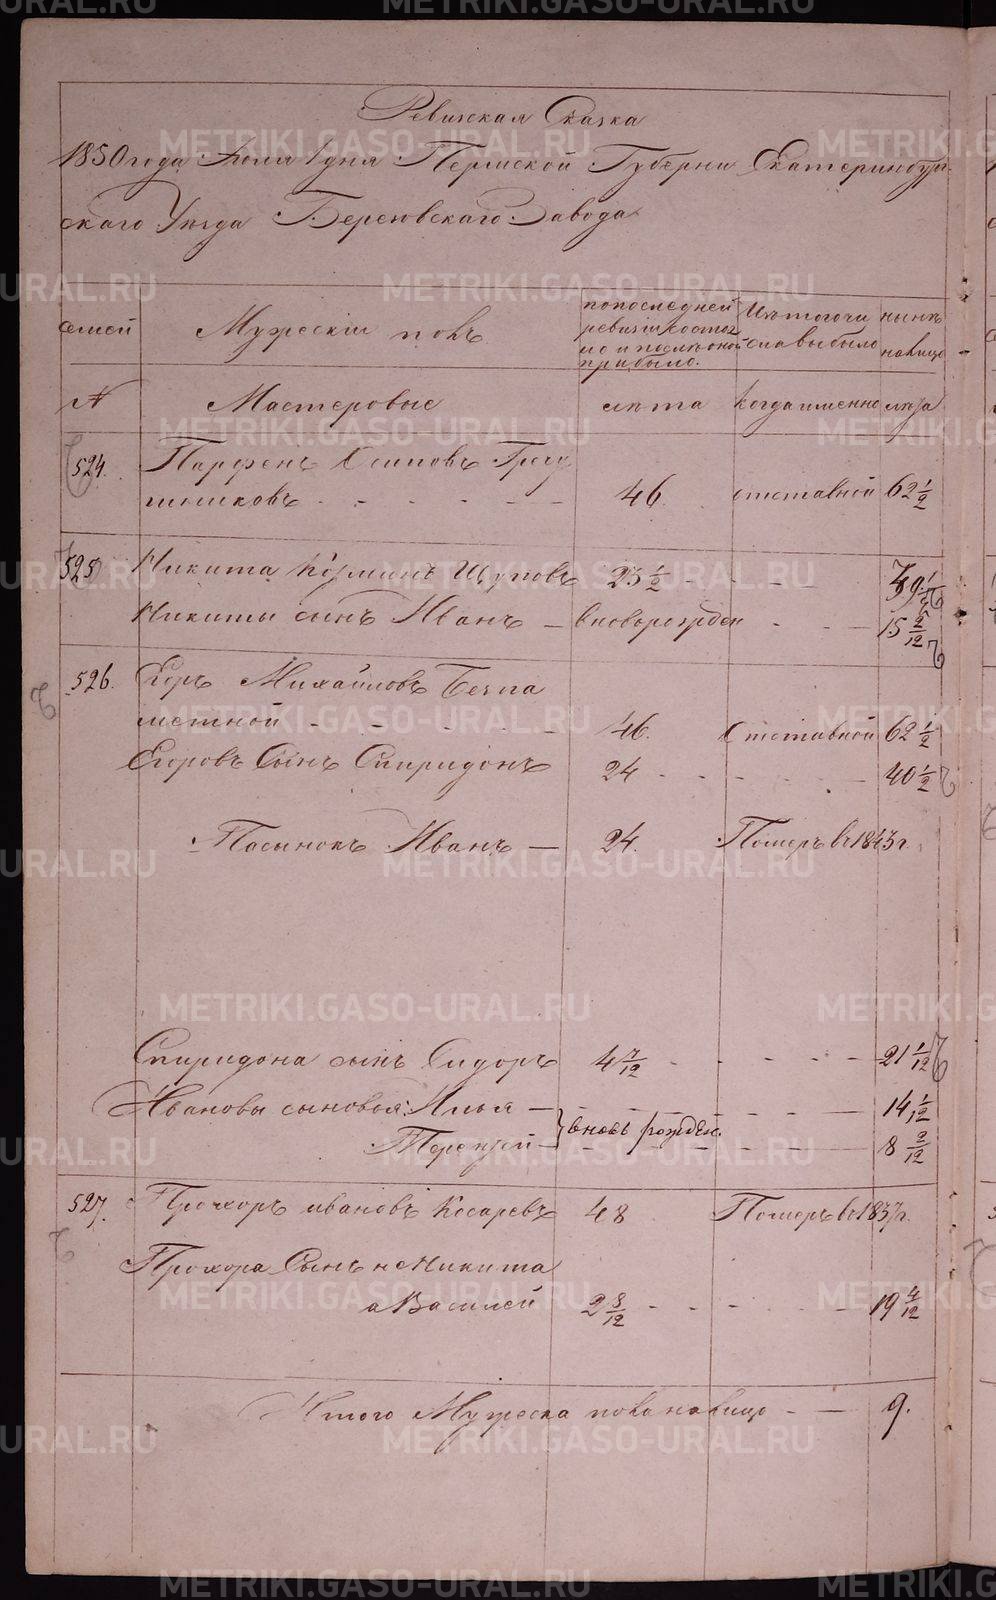 Ревизская Сказка
1850 года Июля 1 дня Пермской Губерни Екатеринбург-
скаго Уезда Березовскаго Завода
семей
Мужескій полъ
попоследней
ревизіи состоя
ло и послѣ оной
прибыло.
Изътогочи
сла выбыло
нынѣ
налицо
№
Мастеровые
лѣта
когда именно
лѣта
524.
Парфенъ Осиповъ Гречу
шниковъ - - - - - -
46.
отставной
62 1/2
525
Никита Щуповъ
23 1/2 - - - -
39 1/2
Никиты сынъ Иванъ - вновьрожден - - -
15 2/12
526.
Егоръ Михайловъ Безпа
мѣтной - - - - - -
46.
Отставной
62 1/2
Егоровъ Сынъ Спиридонъ
24 - - - - -
40 1/2
Пасынокъ Иванъ —
24.
Померъ в 1843 г.
Спиридона сынъ Сидоръ
4 7/12 - - - - -
21 1/12
Ивановы сыновья: Илья —
14 1/2
Терентей -
вновь рожден.
8 2/12
527.
Прохоръ ивановъ Косаревъ
48
Померъ в 1837 г.
Прохора Сынъ не Никита
а Василей
2 8/12 - - - - -
19 4/12
Итого Мужеска пола налицо - —
9.
METRIKI.GASO-URAL.RU